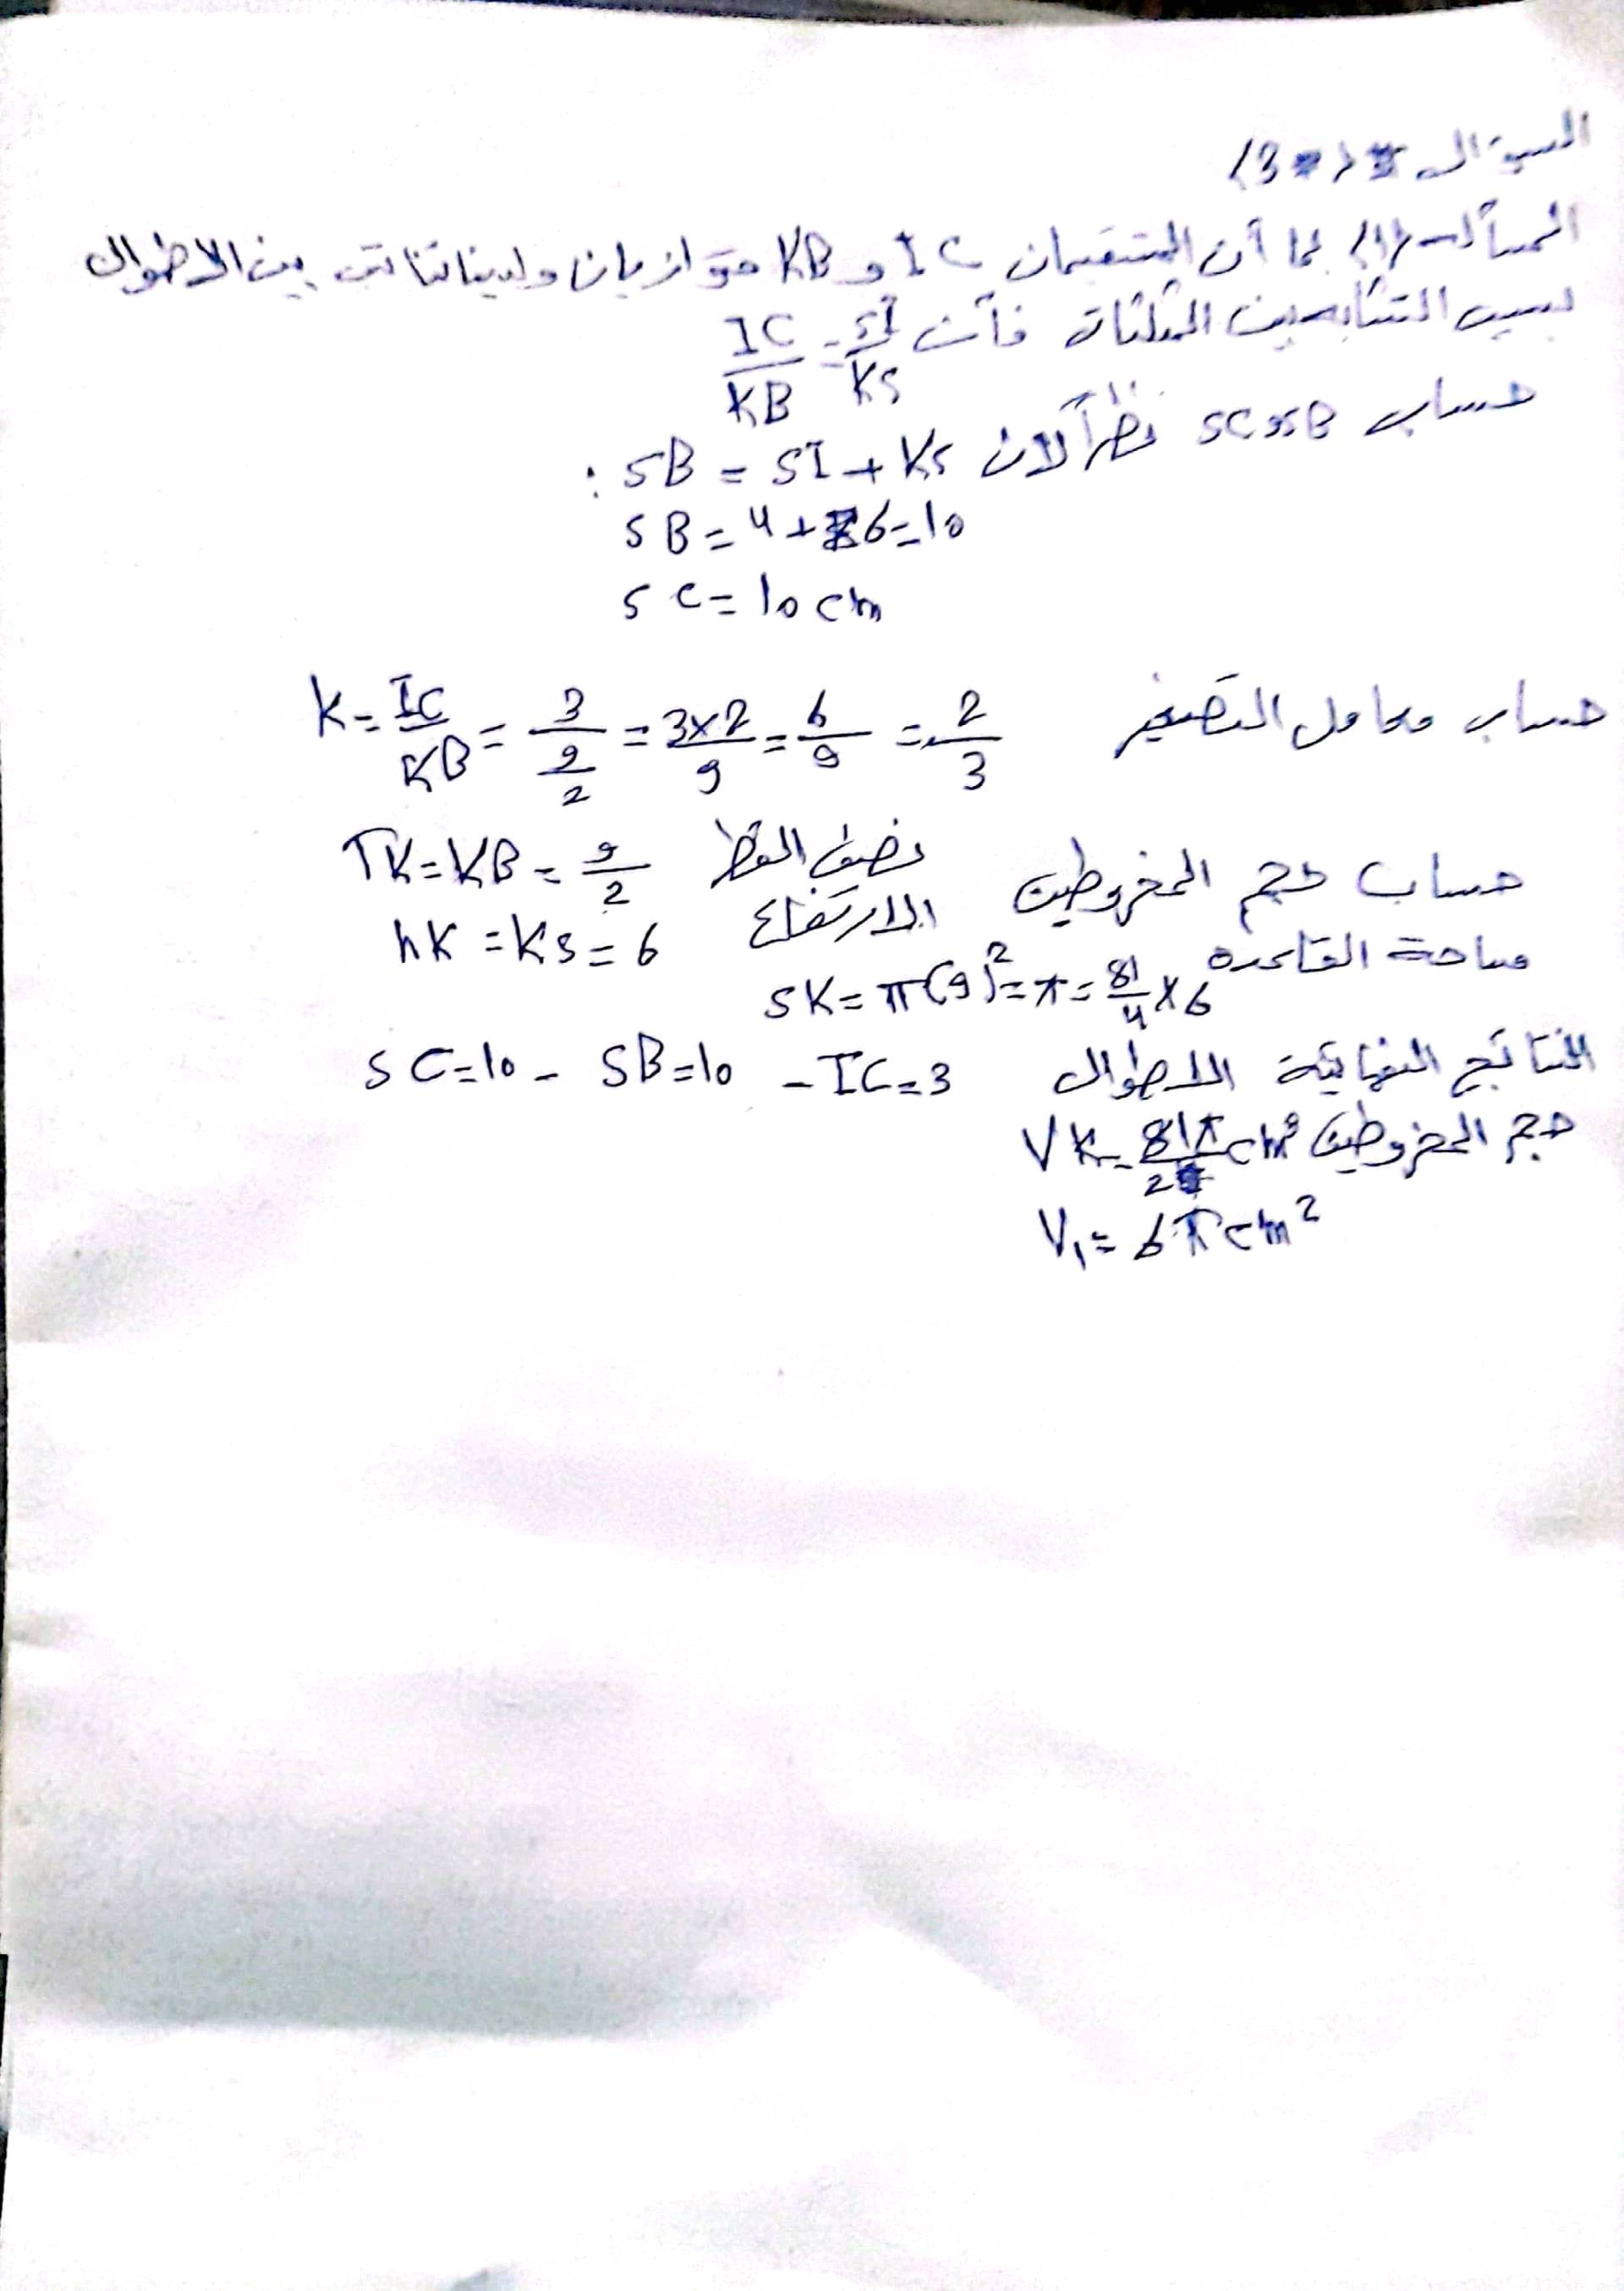 السؤال (3)
المسألة (1) بما أن المستقيمان IC و KB متوازيان ولدينا تناتب بين الاطوال
بسبب التشابه بين المثلثات فأن IC/KB = SI/KS
حساب SB و SC نظراً لان SB = SI + KS :
SB = 4 + 6 = 10
SC = 10 cm
حساب معامل التصغير K = IC/KB = 3/(9/2) = 3×2/9 = 6/9 = 2/3
حساب حجم المخروطين نصف القطر TK = KB = 9/2
الارتفاع hK = KS = 6
مساحة القاعدة SK = π(9)² = π = 81/4 × 6
النتائج النهائية الاطوال SC = 10 - SB = 10 - IC = 3
حجم المخروطين VK = 81π/2 cm³
V1 = 6π cm²